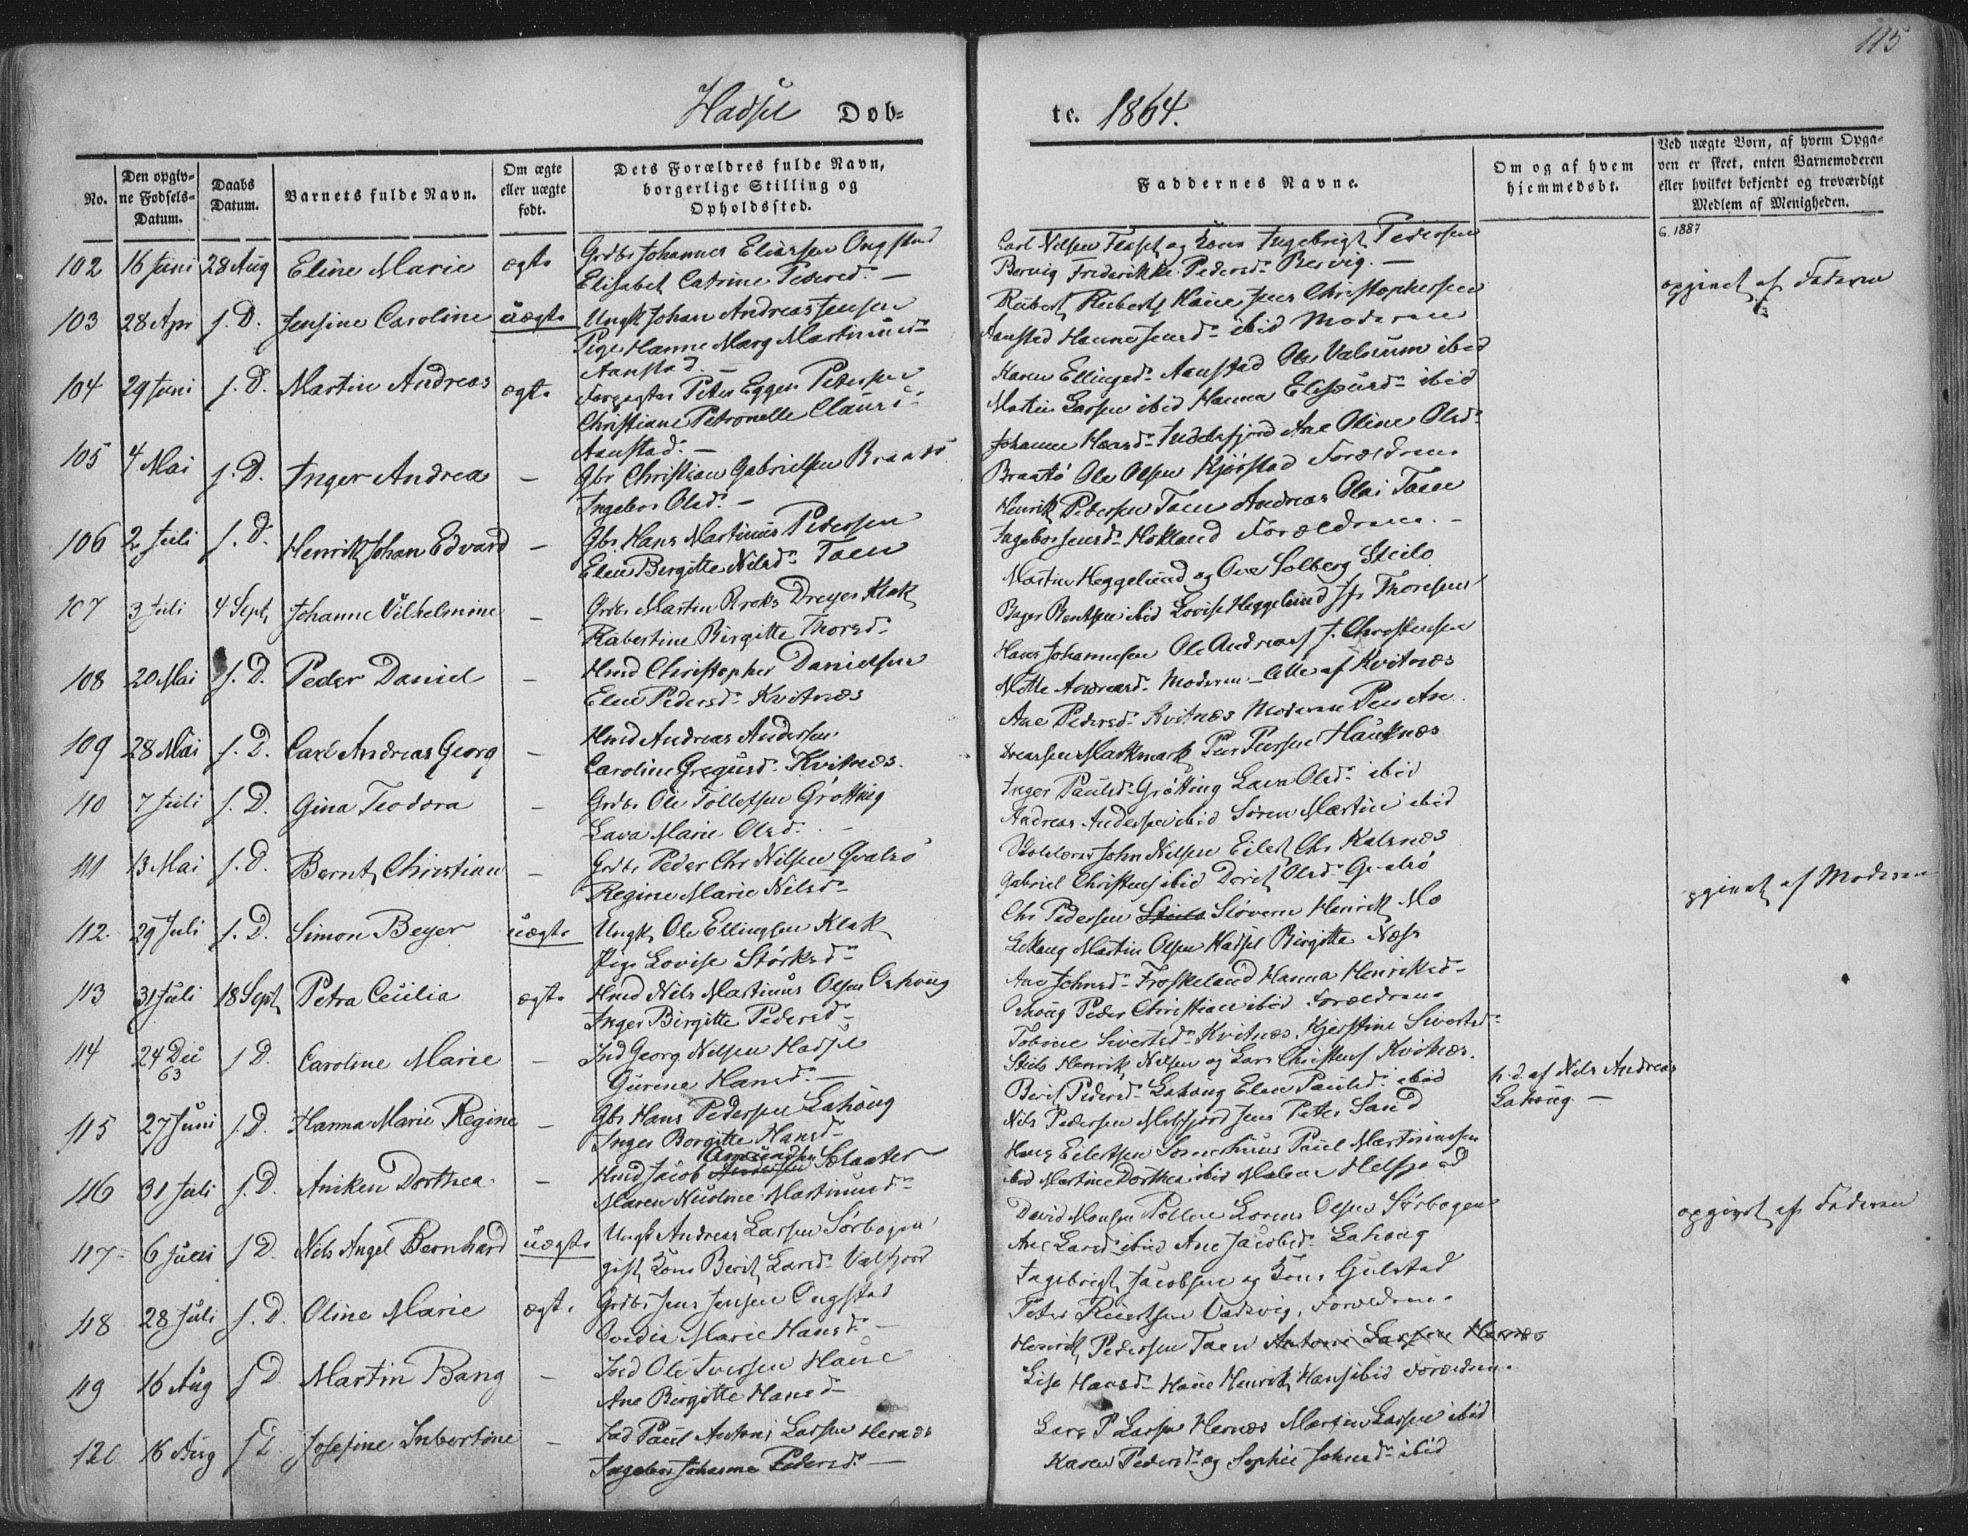 115
Hadsel Dob=
te. 1864.
No.
Den opgiv-
ne Fødsels-
Datum.
Daabs
Datum.
Barnets fulde Navn.
Om ægte
eller uægte
født.
Dets Forældres fulde Navn,
borgerlige Stilling og
Opholdssted.
Faddernes Navne.
Om og af hvem
hjemmedøbt.
Ved uægte Børn, af hvem Opga-
ven er skeet, enten Barnemoderen
eller hvilket bekjendt og troværdigt
Medlem af Menigheden.
G. 1887
102 16 Juni 28 Aug Eline Marie ægte Grdbr Johannes Eliassen Ongstad
Elisabet Catrine Pedersd. —
Carl Nilsen og Kone Ingebrigt Pedersen
Bervig Frederikke Pedersd. Bervig. —
103 28 Apr s. D. Jensine Caroline uægte Ungk Johan Andreas Jensen
Pige Hanne Marg Martinusd.
Aanstad. —
Rubert Rubertsen Haue Jens Christophersen
Aanstad Hanne Jensd. ibid Moderen
opgivet af Faderen
104 29 Juni s. D. Martin Andreas ægte Peter Eggen Petersen
Christiane Petronelle Clausd.
Aanstad. —
Karen Ellingsd. Aanstad Ole Valsum ibid
Martin Larsen ibid Hanna Elisæusd. ibid
105 4 Mai s. D. Inger Andrea — Gbr Christian Gabrielsen Brastø
Ingebor Olsd. —
Johanne Hansd. Indresfjord Ane Oline Olsd.
Brastø Ole Olsen Kjørstad Forældrene
106 2 Juli s. D. Henrik Johan Edvard — Gbr Hans Martinus Pedersen
Elen Birgitte Nilsd. Taen
Henrik Pedersen Taen Andreas Olai Taen
Ingebor Jensd. Hokland Forældrene. —
107 3 Juli 4 Sept Johanne Vilhelmine — Grdbr Martin Kroks Dreyer Klak
Robertine Birgitte Thorsd.
Martin Heggelund og Ove Solberg Steilo
Bager Bentsen ibid Lovise Heggelund Thoresen
108 20 Mai s. D. Peder Daniel — Hmd Christopher Danielsen
Elen Pedersd. Kvitnæs
Hans Johannesen Ole Andreas J. Christensen
Mette Andreasd. Moderen — Alle af Kvitnæs
109 28 Mai s. D. Carl Andreas Georg — Hmd Andreas Andersen
Caroline Gregusd. Kvitnæs.
Ane Pedersd. Kvitnæs Moderen Peer An-
dreassen Markmark Peer Peersen Hauknæs
110 7 Juli s. D. Gina Teodora — Grdbr Ole Tollefsen Grøtting
Lava Marie Olsd. —
Inger Paulsd. Grøtting Lava Olsd. ibid
Andreas Andersen ibid Søren Martin ibid
111 13 Mai s. D. Bernt Christian — Grdbr Peder Chr Nilsen Qvalsø
Regine Marie Nilsd.
Skolelærer John Nilsen Eilert Chr Kalsnæs
Gabriel Christens ibid Dorit Olsd. Qvalsø
112 29 Juli s. D. Simon Beyer uægte Ungk Ole Ellingsen Klak
Pige Lovise Størksd.
Chr Pedersen Steilo Sløveren Henrik Mo
Lekang Martin Olsen Hadsel Birgitte Næss
opgivet af Moderen
113 31 Juli 18 Sept Petra Cecilia ægte Hmd Nils Martinus Olsen Oshaug
Inger Birgitte Pedersd.
Ane Johnsd. Froskeland Hanna Henriksd.
Oshaug Peder Christian ibid Forældrene
114 24 Dec
63 s. D. Caroline Marie — Ind Georg Nilsen Hadsel
Gurine Hansd. —
Tobine Sivertsd. Kvitnæs, Kjerstine Sivertsd.
Steilo Henrik Nilsen og Lars Christens Kvitnæs.
115 27 Juni s. D. Hanna Marie Regine — Gbr Hans Pedersen Lahaug
Inger Borgitte Hansd.
Berit Pedersd. Lahaug Elen Paulsd. ibid
Nils Pedersen Melfjord Jens Peter Sand
h.d. af Nils Andreas
Lahaug —
116 31 Juli s. D. Aniken Dorthea — Hmd Jacob Amundsen Sælaater
Maren Nicoline Martinusd.
Hans Eilertsen Sommerhuus Paul Martinussen
ibid Martine Dorthea ibid Malene Melfjord
117 6 Juni s. D. Nils Angel Bernhard uægte Ungk Andreas Larsen Sørbogen
gift Kone Berit Larsd. Valfjord
David Monsen Pollen Lorens Olsen Sørbogen
Ane Larsd. ibid Ane Jacobsd. Lahaug
opgivet af Faderen
118 28 Juli s. D. Oline Marie ægte Grdbr Jens Jensen Ongstad
Ovedia Marie Hansd. —
Ingebrigt Jacobsen og Kone Gulstad
Peter Ruertsen Vadsvig. Forældrene
119 16 Aug s. D. Martin Bang — Ind Ole Iversen Haue
Ane Birgitte Hansd.
Henrik Pedersen Taen Antoni Larsen Hernæs
Lise Hansd. Haue Henrik Hans ibid Forældrene
120 16 Aug s. D. Josefine Inbertine — Ind Paul Antoni Larsen Hernæs
Ingebor Johanne Pedersd. —
Lars P Larsen Hernæs Martin Larsen ibid
Karen Pedersd. og Sophie Johnsd. ibid